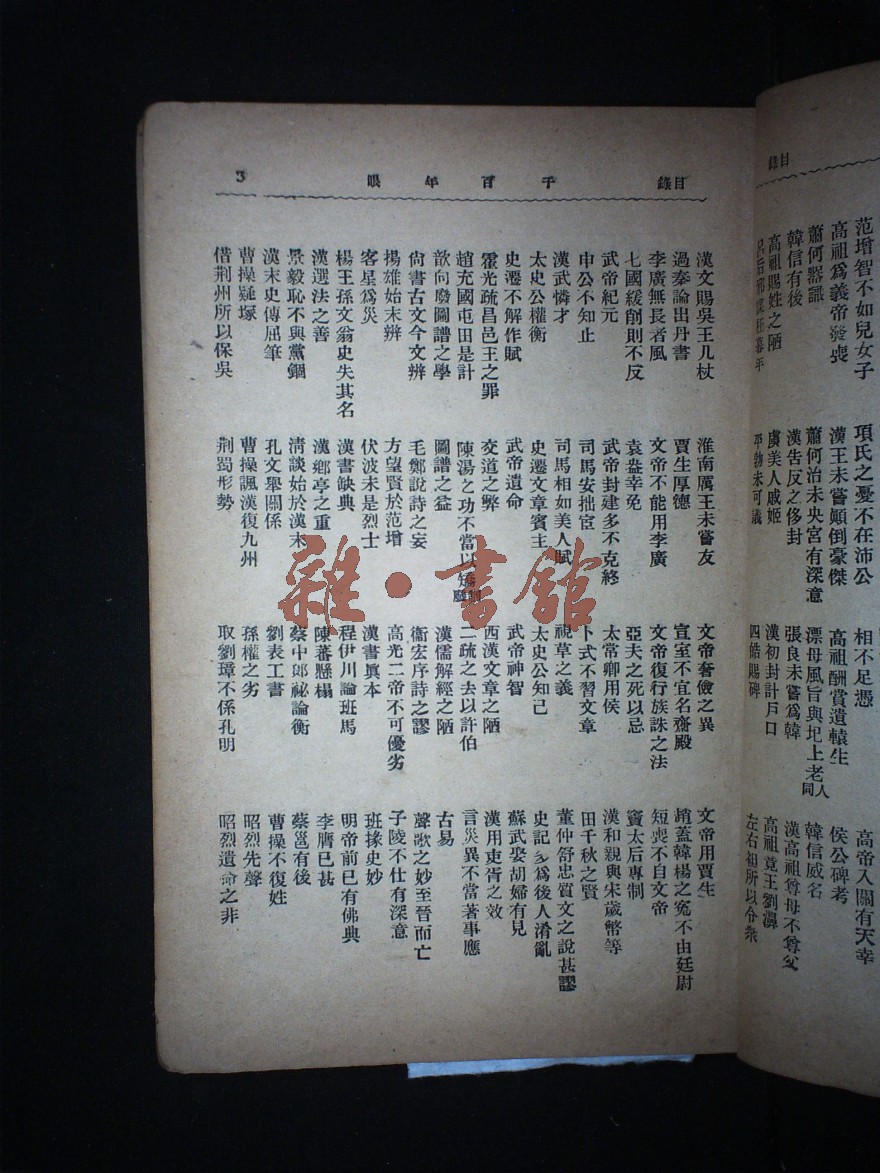 目錄
范增智不如兒女子 項氏之憂不在沛公 相不足憑 高帝入關有天幸
高祖爲義帝發喪 漢王未嘗顚倒豪傑 高祖酬賞遺轅生 侯公碑考
蕭何器識 蕭何治未央宮有深意 漂母風旨與圯上老人同 韓信威名
韓信有後 漢吿反之侈封 張良未嘗爲韓 漢高祖尊母不尊父
高祖賜姓之陋 虞美人戚姬 漢初封計戶口 高祖竟王劉濞
呂后邪謀在暮年 平勃未可議 四皓賜碑 左右袒所以令衆
目錄 千百年眼 3
漢文賜吳王几杖 淮南厲王未嘗友 文帝奢儉之異 文帝用賈生
過秦論出丹書 賈生厚德 宣室不宜名齋殿 趙蓋韓楊之冤不由廷尉
李廣無長者風 文帝不能用李廣 文帝復行族誅之法 短喪不自文帝
七國緩削則不反 袁盎幸免 亞夫之死以忌 竇太后專制
武帝紀元 武帝封建多不克終 太常卿用侯 漢和親與宋歲幣等
申公不知止 司馬安拙宦 卜式不習文章 田千秋之賢
漢武憐才 司馬相如美人賦 視草之義 董仲舒忠質文之說甚謬
太史公權衡 史遷文章賓主 太史公知己 史記多爲後人淆亂
史遷不解作賦 武帝遺命 武帝神智 蘇武娶胡婦有見
霍光疏昌邑王之罪 交道之弊 西漢文章之陋 漢用吏胥之效
趙充國屯田是計 陳湯之功不當以矯制廢 二疏之去以許伯 言災異不當著事應
歆向廢圖譜之學 圖譜之益 漢儒解經之陋 古易
尙書古文今文辨 毛鄭說詩之妄 衞宏序詩之謬 聲歌之妙至晉而亡
揚雄始末辨 方望賢於范增 高光二帝不可優劣 子陵不仕有深意
客星爲災 伏波未是烈士 漢書眞本 班掾史妙
楊王孫文翁史失其名 漢書缺典 程伊川論班馬 明帝前已有佛典
漢選法之善 漢鄉亭之重 陳蕃懸榻 李膺已甚
景毅恥不與黨錮 淸談始於漢末 蔡中郎祕論衡 蔡邕有後
漢末史傳屈筆 孔文舉關係 劉表工書 曹操不復姓
曹操疑塚 曹操諷漢復九州 孫權之劣 昭烈先聲
借荆州所以保吳 荆蜀形勢 取劉璋不係孔明 昭烈遺命之非
雜·書館